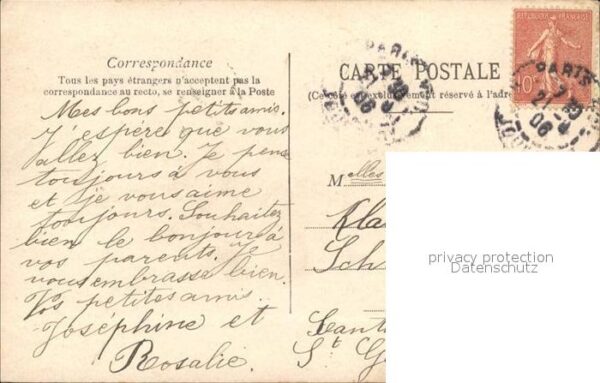 Correspondance
Tous les pays étrangers n'acceptent pas la
correspondance au recto, se renseigner à la Poste
Mes bons petits amis.
J'espère que vous
allez bien. Je pense
toujours à vous
et je vous aime
toujours. Souhaitez
bien le bonjour à
vos parents. Je
vous embrasse bien.
Vos petites amis.
Joséphine et
Rosalie.
CARTE POSTALE
(Ce côté est exclusivement réservé à l'adre
REPUBLIQUE FRANÇAISE
10c
PARIS
PARIS
7 30
21
06
Melles
Kla
Sch
Cant
St G
privacy protection
Datenschutz